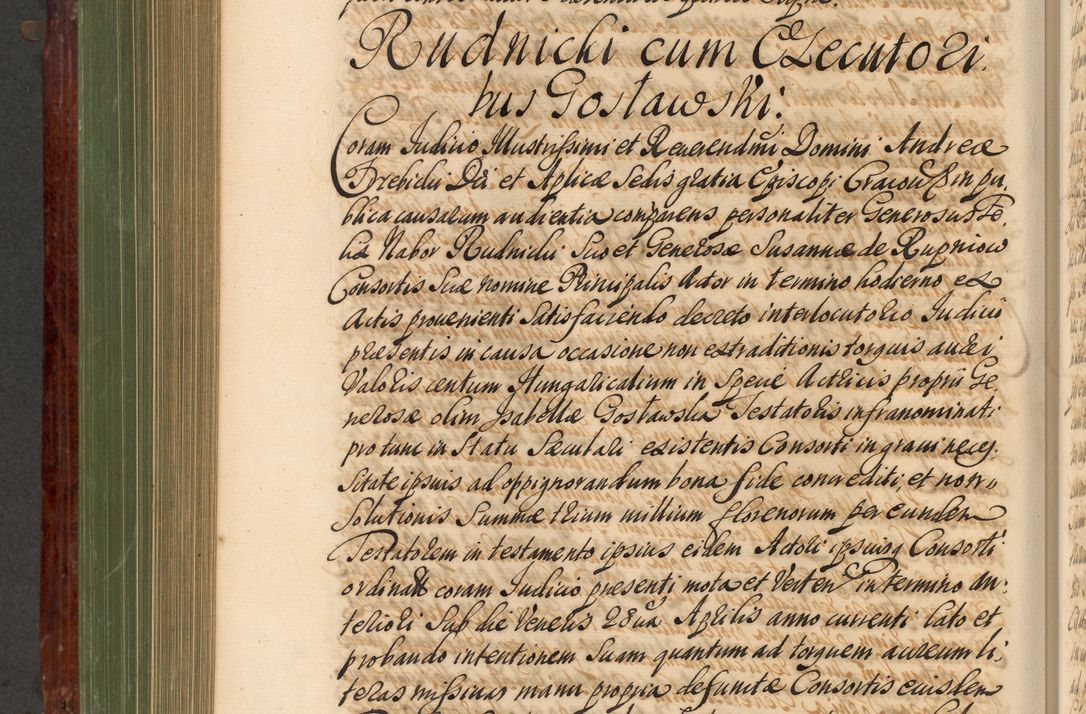 Rudnicki cum Executori
bus Gosławski:
Coram Judicio Illustrissimi et Reverendmi Domini Andreae
Trebicki Dei et Aplicae Sedis gratia Episcopi Cracou in pu,
blica causarum audientia comparens personaliter Generosus Fe,
lix Nabor Rudnicki Suo et Generosae Susannae de Rupniow
Consortis Suae nomine Principalis Actor in termino hodierno ex
Actis prouenienti Satisfaciendo decreto interlocutorio Judicii
praesentis in causa occasione non extraditionis torquis aurei
Valoris centum Hungaricalium in Specie Actricis proprii Ge
nerosae olim Isabellae Gosławska Testatoris infranominati
pro tunc in Statu Saeculari existentis Consorti in graui neces,
sitate ipsius ad oppignorandum bona fide concrediti, et non
Solutionis Summae trium millium florenorum per eundem
Testatorem in testamento ipsius eidem Actori ipsiusq Consorti
ordinatae coram Judicio praesenti mota et Verten in termino An,
teriori Sub die Veneris 28va Aprilis anno currenti lato et
probando intentionem Suam quantum ad torquem aureum li,
teras missiuas manu propria defunctae Consortis eiusdem